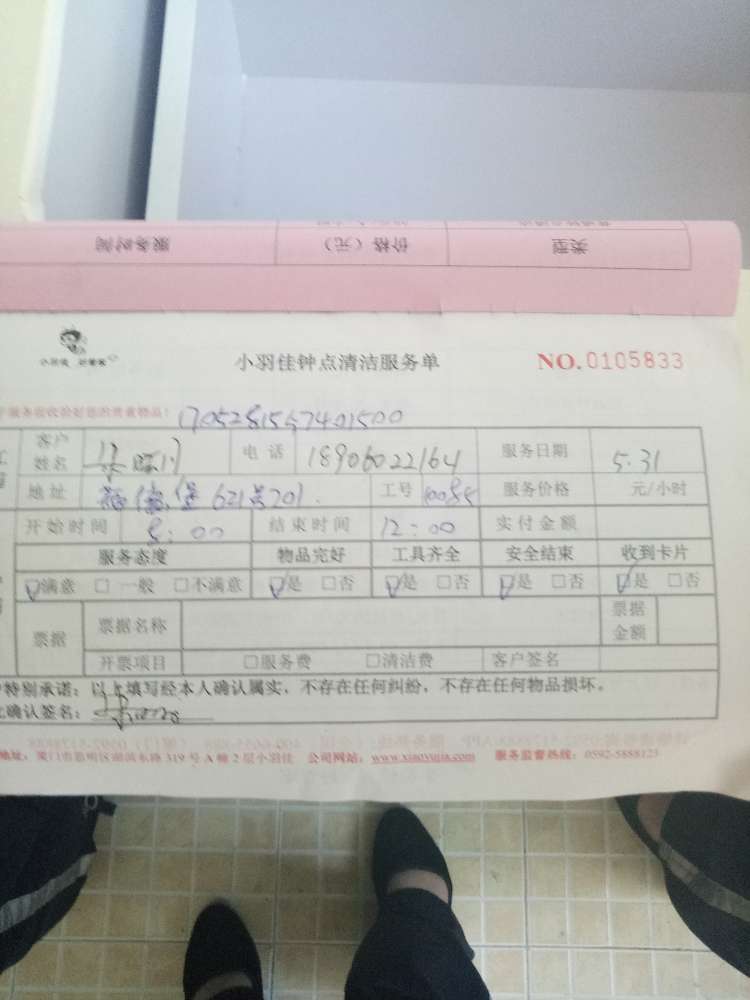 类型 价格（元） 服务时间
小羽佳钟点清洁服务单 NO.0105833
服务验收验好您的贵重物品！ 1705281557401500
客户姓名 电话 18906022164 服务日期 5.31
地址 621号201. 工号 10085 服务价格 元/小时
开始时间 8:00 结束时间 12:00 实付金额
服务态度 物品完好 工具齐全 安全结束 收到卡片
☑满意 □一般 □不满意 ☑是 □否 ☑是 □否 ☑是 □否 ☑是 □否
票据 票据名称 票据金额
开票项目 □服务费 □清洁费 客户签名
特别承诺：以上填写经本人确认属实，不存在任何纠纷，不存在任何物品损坏。
确认签名：
地址：厦门市思明区湖滨东路319号A幢2层小羽佳 公司网站：www.xiaoyujia.com 服务监督热线：0592-5888123